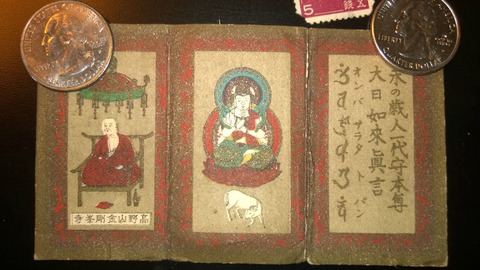 UNITED STATES OF AMERICA
LIBERTY
5 五錢
LIBERTY
QUARTER DOLLAR
高野山金剛峯寺
未の歳人一代守本尊
大日如來眞言
オンバサラダトバン